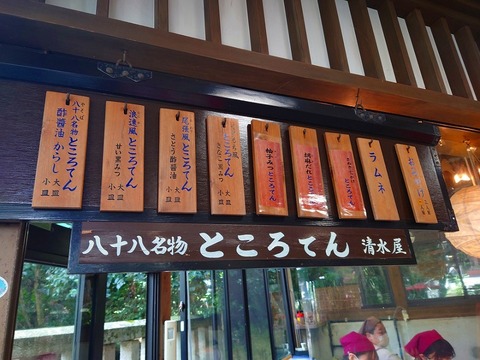 八十八名物
やそば
ところてん
酢醤油 からし
大皿
小皿
浪速風
ところてん
甘い黒みつ
大皿
小皿
尾張風
ところてん
さとう酢醤油
大皿
小皿
ところてん
きなこ黒みつ
大皿
小皿
柚子みつところてん
胡麻だれところてん
ところてん
ラムネ
八十八名物 ところてん 清水屋